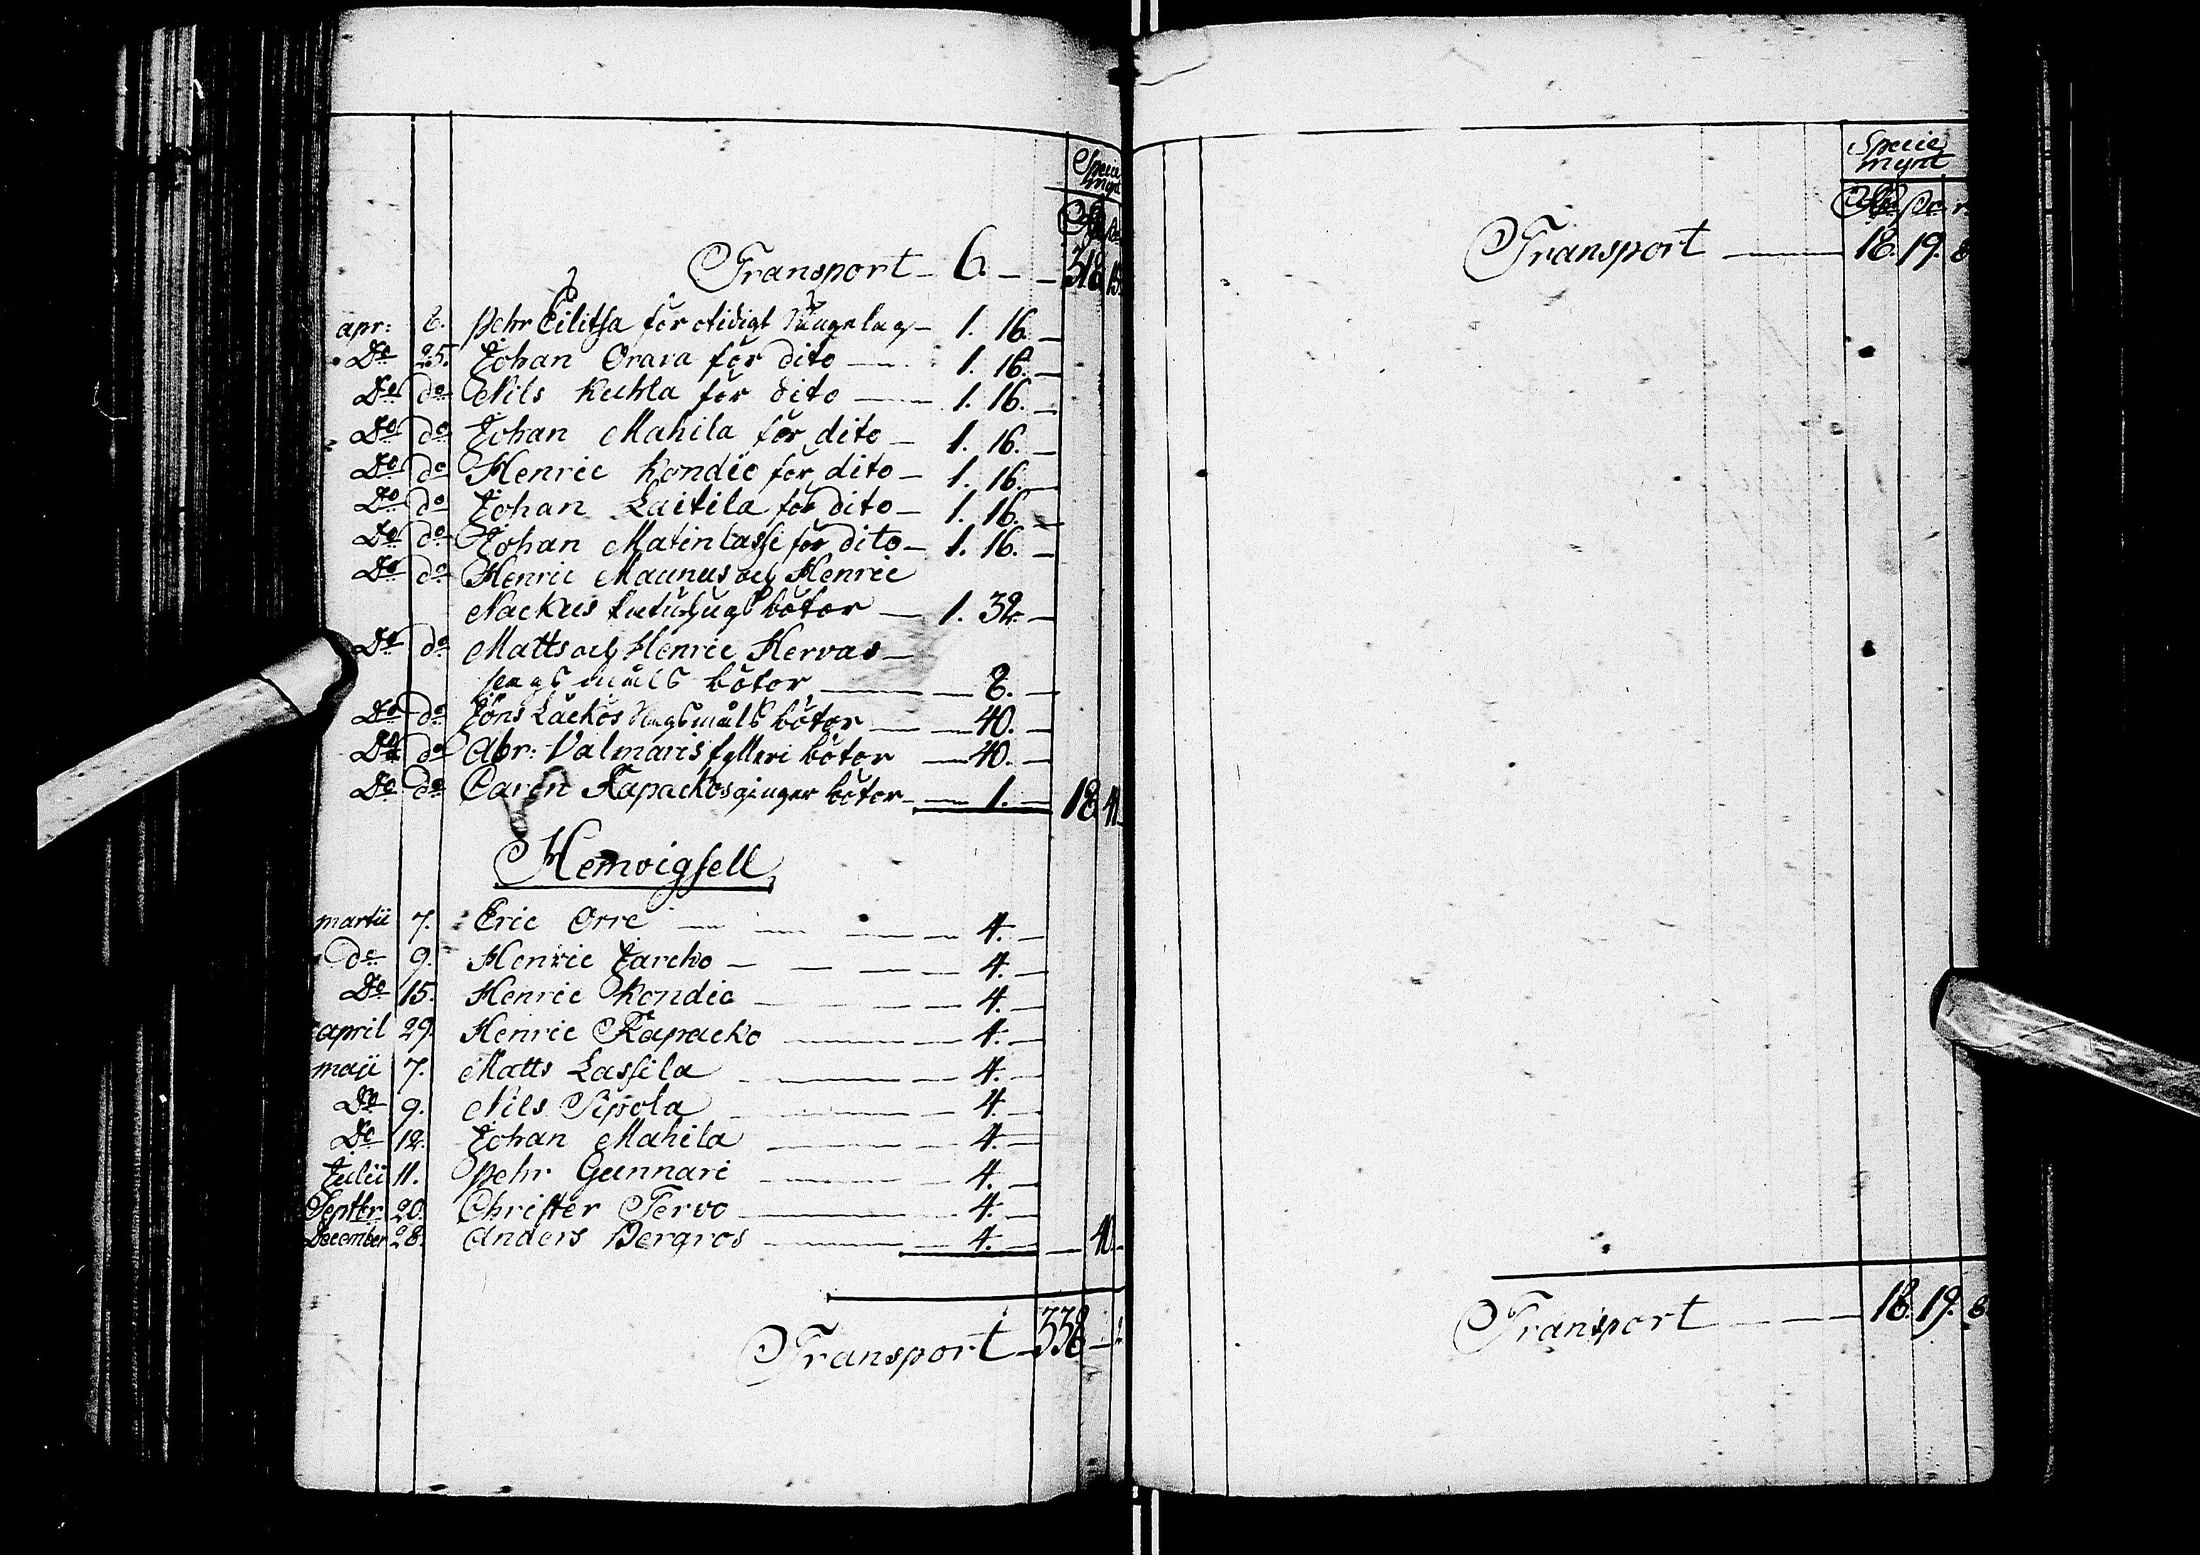 Specie
mynt
Transport - 6. - - 318 15
apr: 6. Pehr Eilitsa för otidigt sängelag - 1. 16. -
Do 25. Johan Orava för dito - 1. 16. -
Do do Nils Kuhla för dito - 1. 16. -
Do do Johan Mahila för dito - 1. 16. -
Do do Henric Kondie för dito - 1. 16. -
Do do Johan Laitila för dito - 1. 16. -
Do do Johan Matinlassi för dito - 1. 16. -
Do do Henric Maunus och Henric
Nackus böter - 1. 32. -
Do do Matts och Henric Hervas -
böter - 8. -
Do do Jöns Läckös böter - 40. -
Do do Abr: Valmaris fylleri böter - 40. -
Do do Carin Kapackos böter - 1. - 18 41
Hemvigsell
martii 7. Eric Orre - 4. -
do 9. Henric Jarcko - 4. -
Do 15. Henric Kondie - 4. -
april 29. Henric Kapacko - 4. -
maji 7. Matts Lassila - 4. -
Do 9. Nils Sipola - 4. -
Do 12. Johan Mahila - 4. -
Julii 11. Pehr Gunnari - 4. -
Septbr 20. Christer Tervo - 4. -
December 28. Anders Bergros - 4. - - 40. -
Transport - 338 -
Specie
mynt
Transport - 18. 19. 8
Transport - 18. 19. 8.